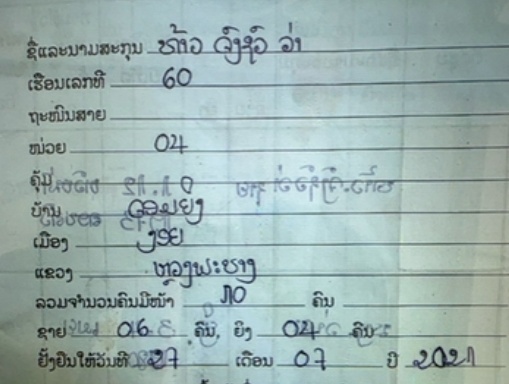 ຊື່ແລະນາມສະກຸນ ທ້າວ ຈົ່ງຊົວ ວ່າ
ເຮືອນເລກທີ 60
ຖະໜົນສາຍ
ໜ່ວຍ 04
ຄຸ້ມ
ບ້ານ
ເມືອງ ງອຍ
ແຂວງ ຫຼວງພະບາງ
ລວມຈຳນວນຄົນມີໜ້າ 10 ຄົນ
ຊາຍ 06 ຄົນ, ຍິງ 04 ຄົນ
ຢັ້ງຢືນໃຫ້ວັນທີ 27 ເດືອນ 07 ປີ 2021